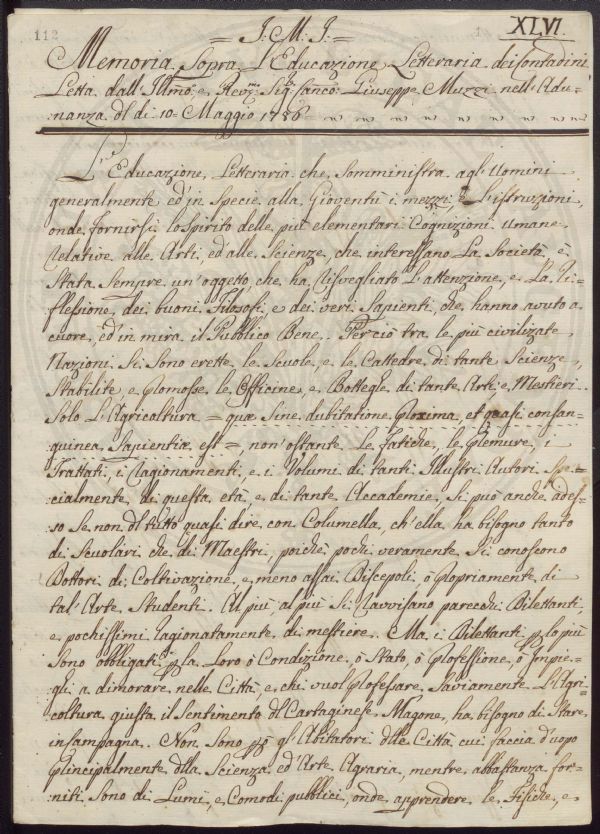 112
1
XLVI
= J: M: J: =
Memoria Sopra l'Educazione Letteraria dei Contadini
Letta dall' Illmo: e Revmo: Sigr: Canco: Giuseppe Muzzi nell' Adu=
nanza dl di 10= Maggio 1786
L' Educazione Letteraria che somministra agl' Uomini
generalmente, ed' in specie alla Gioventù i mezzi, e L'istruzioni,
onde fornirsi lo spirito delle più elementari Cognizioni umane
relative alle Arti, ed' alle Scienze, che interessano La Società è
stata sempre un' oggetto, che ha risvegliato L'attenzione, e La Ri=
flessione dei buoni Filosofi, e dei veri Sapienti, che hanno avuto a
cuore, ed' in mira il Pubblico Bene. Perciò tra le più civilizate
Nazioni si sono erette le Scuole, e le Cattedre di tante Scienze,
stabilite, e promosse le Officine, e Botteghe di tante Arti, e Mestieri.
Solo L'Agricoltura = quæ sine dubitatione proxima, et quasi consan=
guinea Sapientiæ est =, non' ostante Le fatiche, le premure, i
Trattati, i ragionamenti, e i Volumi di tanti Illustri Autori spe=
cialmente di questa età, e di tante Accademie, si può anche ades=
so se non dl tutto quasi dire con Columella, ch' ella ha bisogno tanto
di Scuolari, che di Maestri, poichè pochi veramente si conoscono
Dottori di Coltivazione, e meno assai Discepoli, ò propriamente di
tal' Arte Studenti. Al più, al più si ravvisano parecchi Dilettanti,
e pochissimi ragionatamente di mestiere. Ma i Dilettanti p lo più
sono obbligati p la Loro ò Condizione, ò Stato, ò Professione, ò Impie=
ghi a dimorare nelle Città, e chi vuol professare saviamente L'Agri=
coltura giusta il sentimento dl Cartaginese Magone, ha bisogno di stare
in Campagna. Non sono pò gl' Abitatori dlle Città cui faccia d'uopo
principalmente dlla Scienza, ed' Arte Agraria, mentre abbastanza for=
niti sono di Lumi, e Comodi pubblici, onde apprendere le Fisiche, e